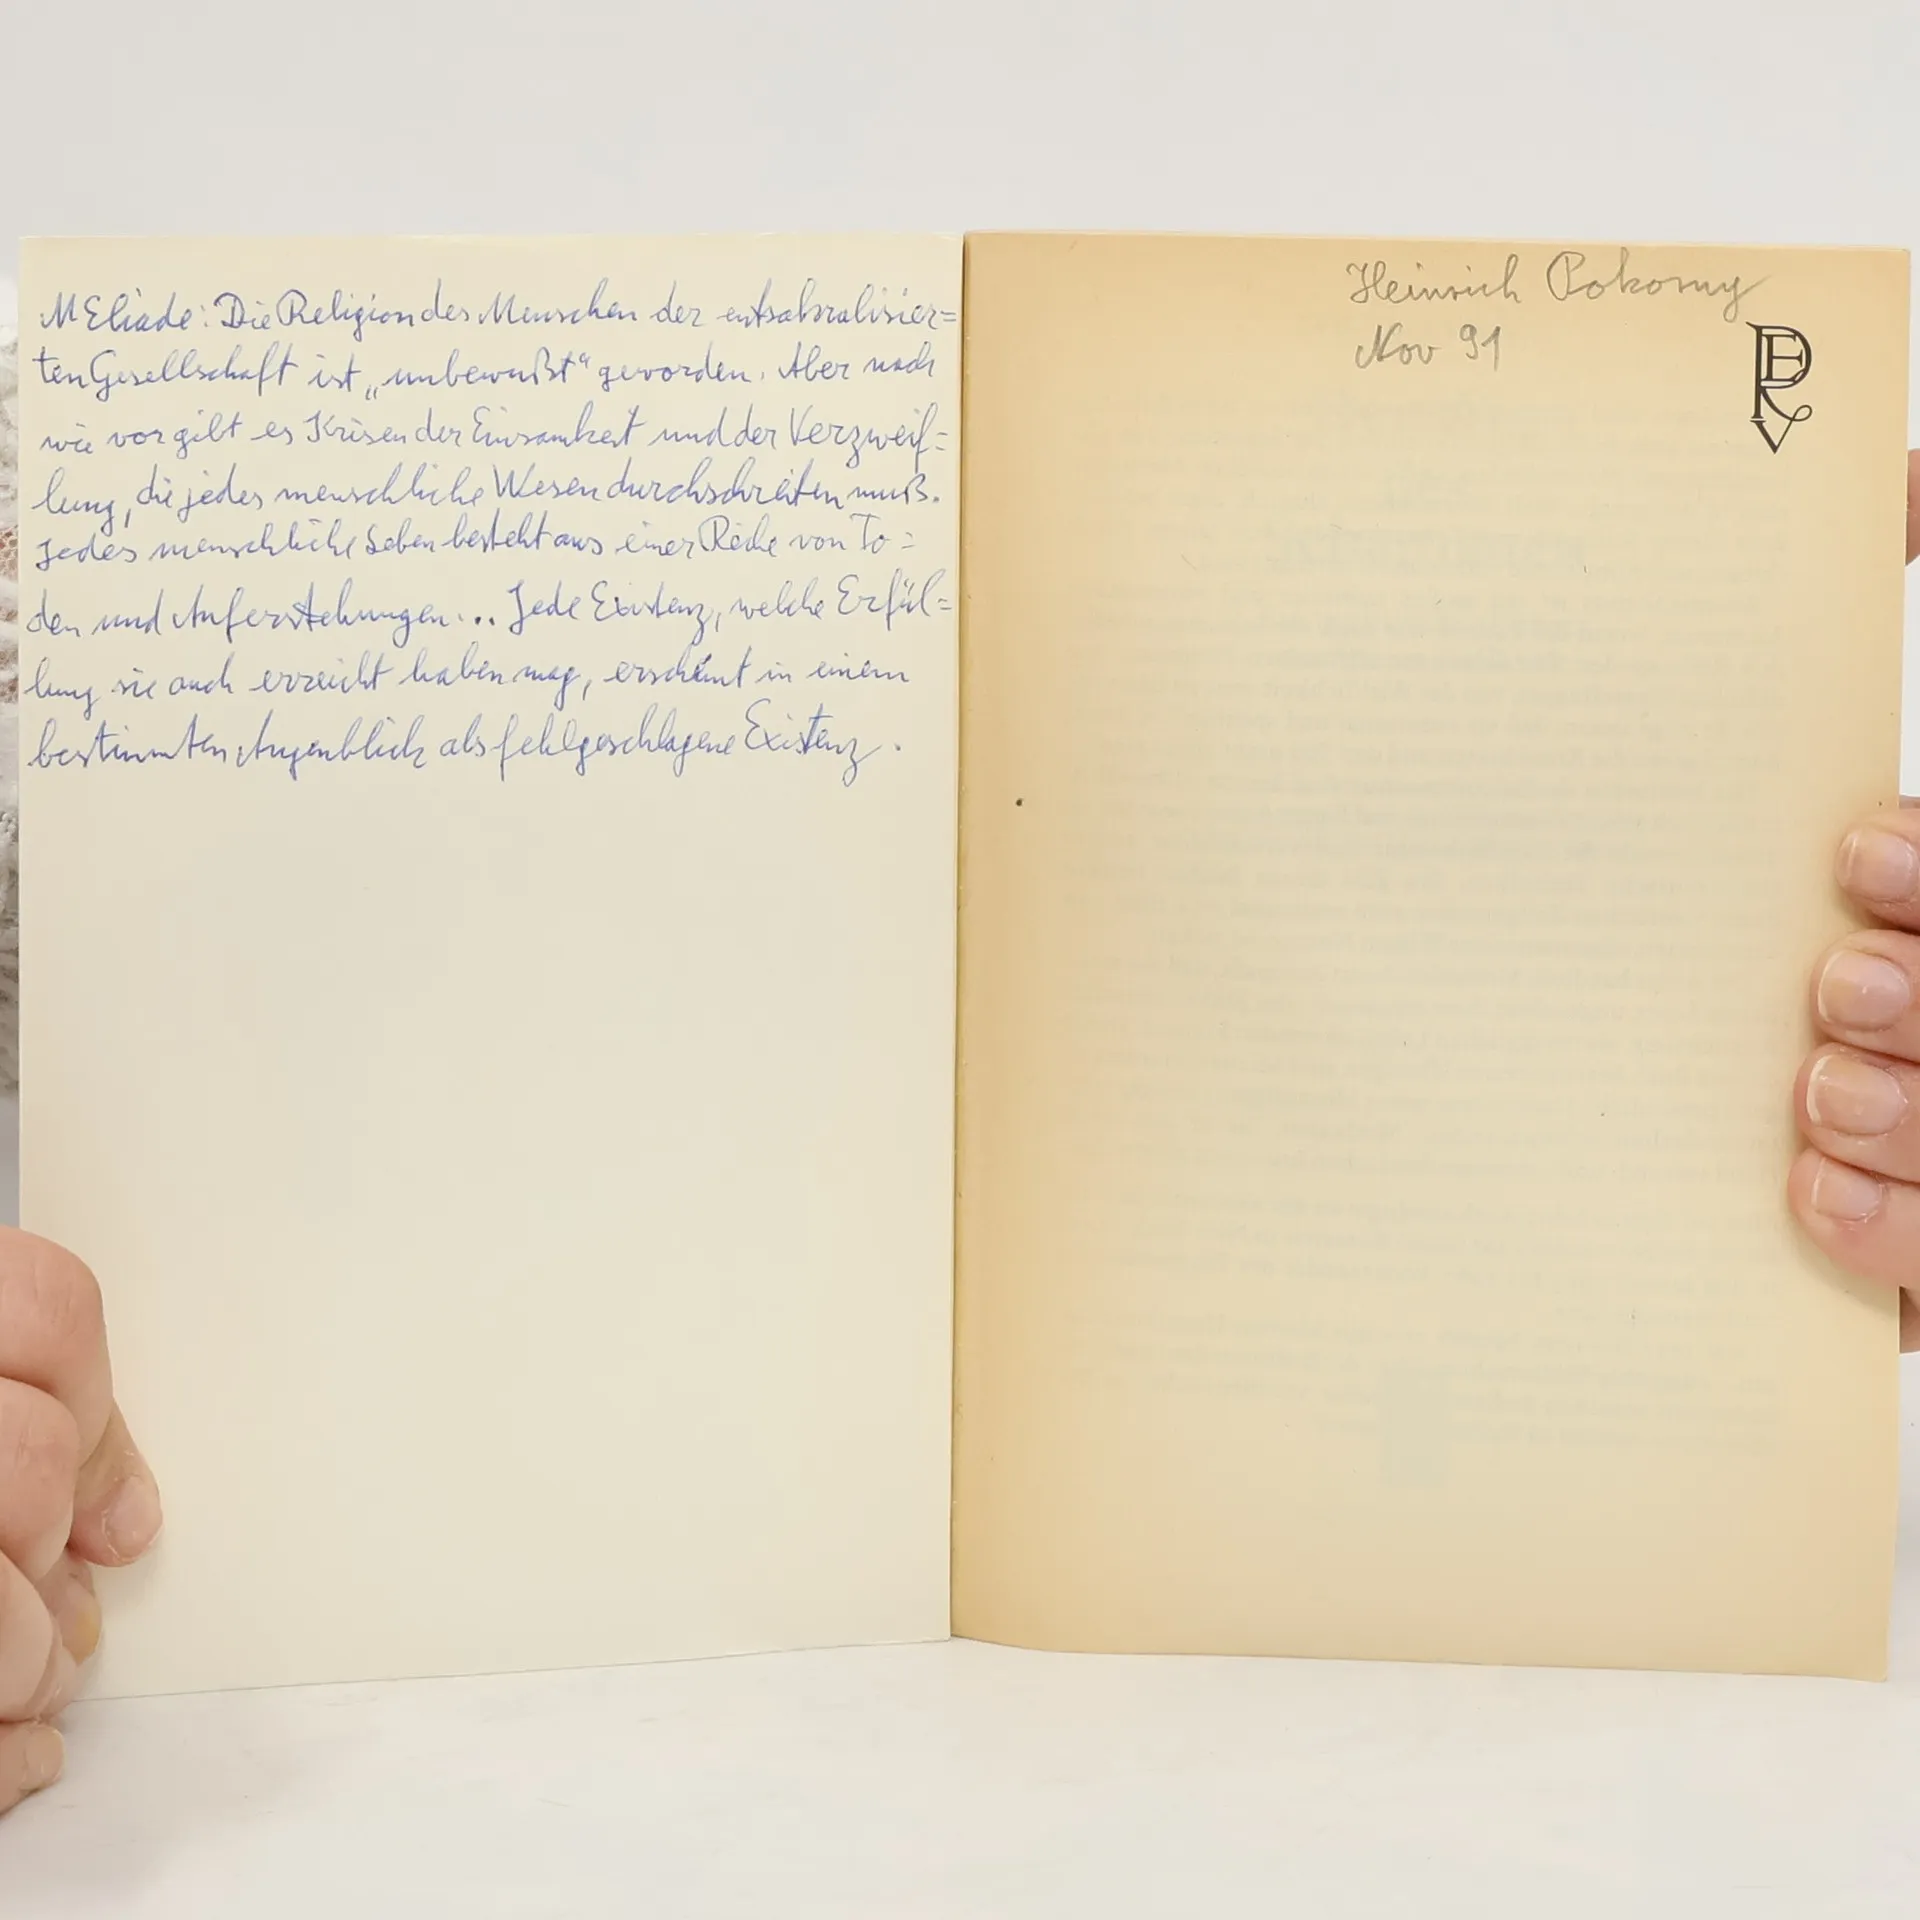 M Eliade: Die Religion des Menschen der entsakralisier=
ten Gesellschaft ist „unbewußt“ geworden. Aber nach
wie vor gibt es Krisen der Einsamkeit und der Verzweif=
lung, die jedes menschliche Wesen durchschreiten muß.
Jedes menschliche Leben besteht aus einer Reihe von To=
den und Auferstehungen... Jede Existenz, welche Erfül=
lung sie auch erreicht haben mag, erscheint in einem
bestimmten Augenblick als fehlgeschlagene Existenz.
Heinrich Pokorny
Nov 91